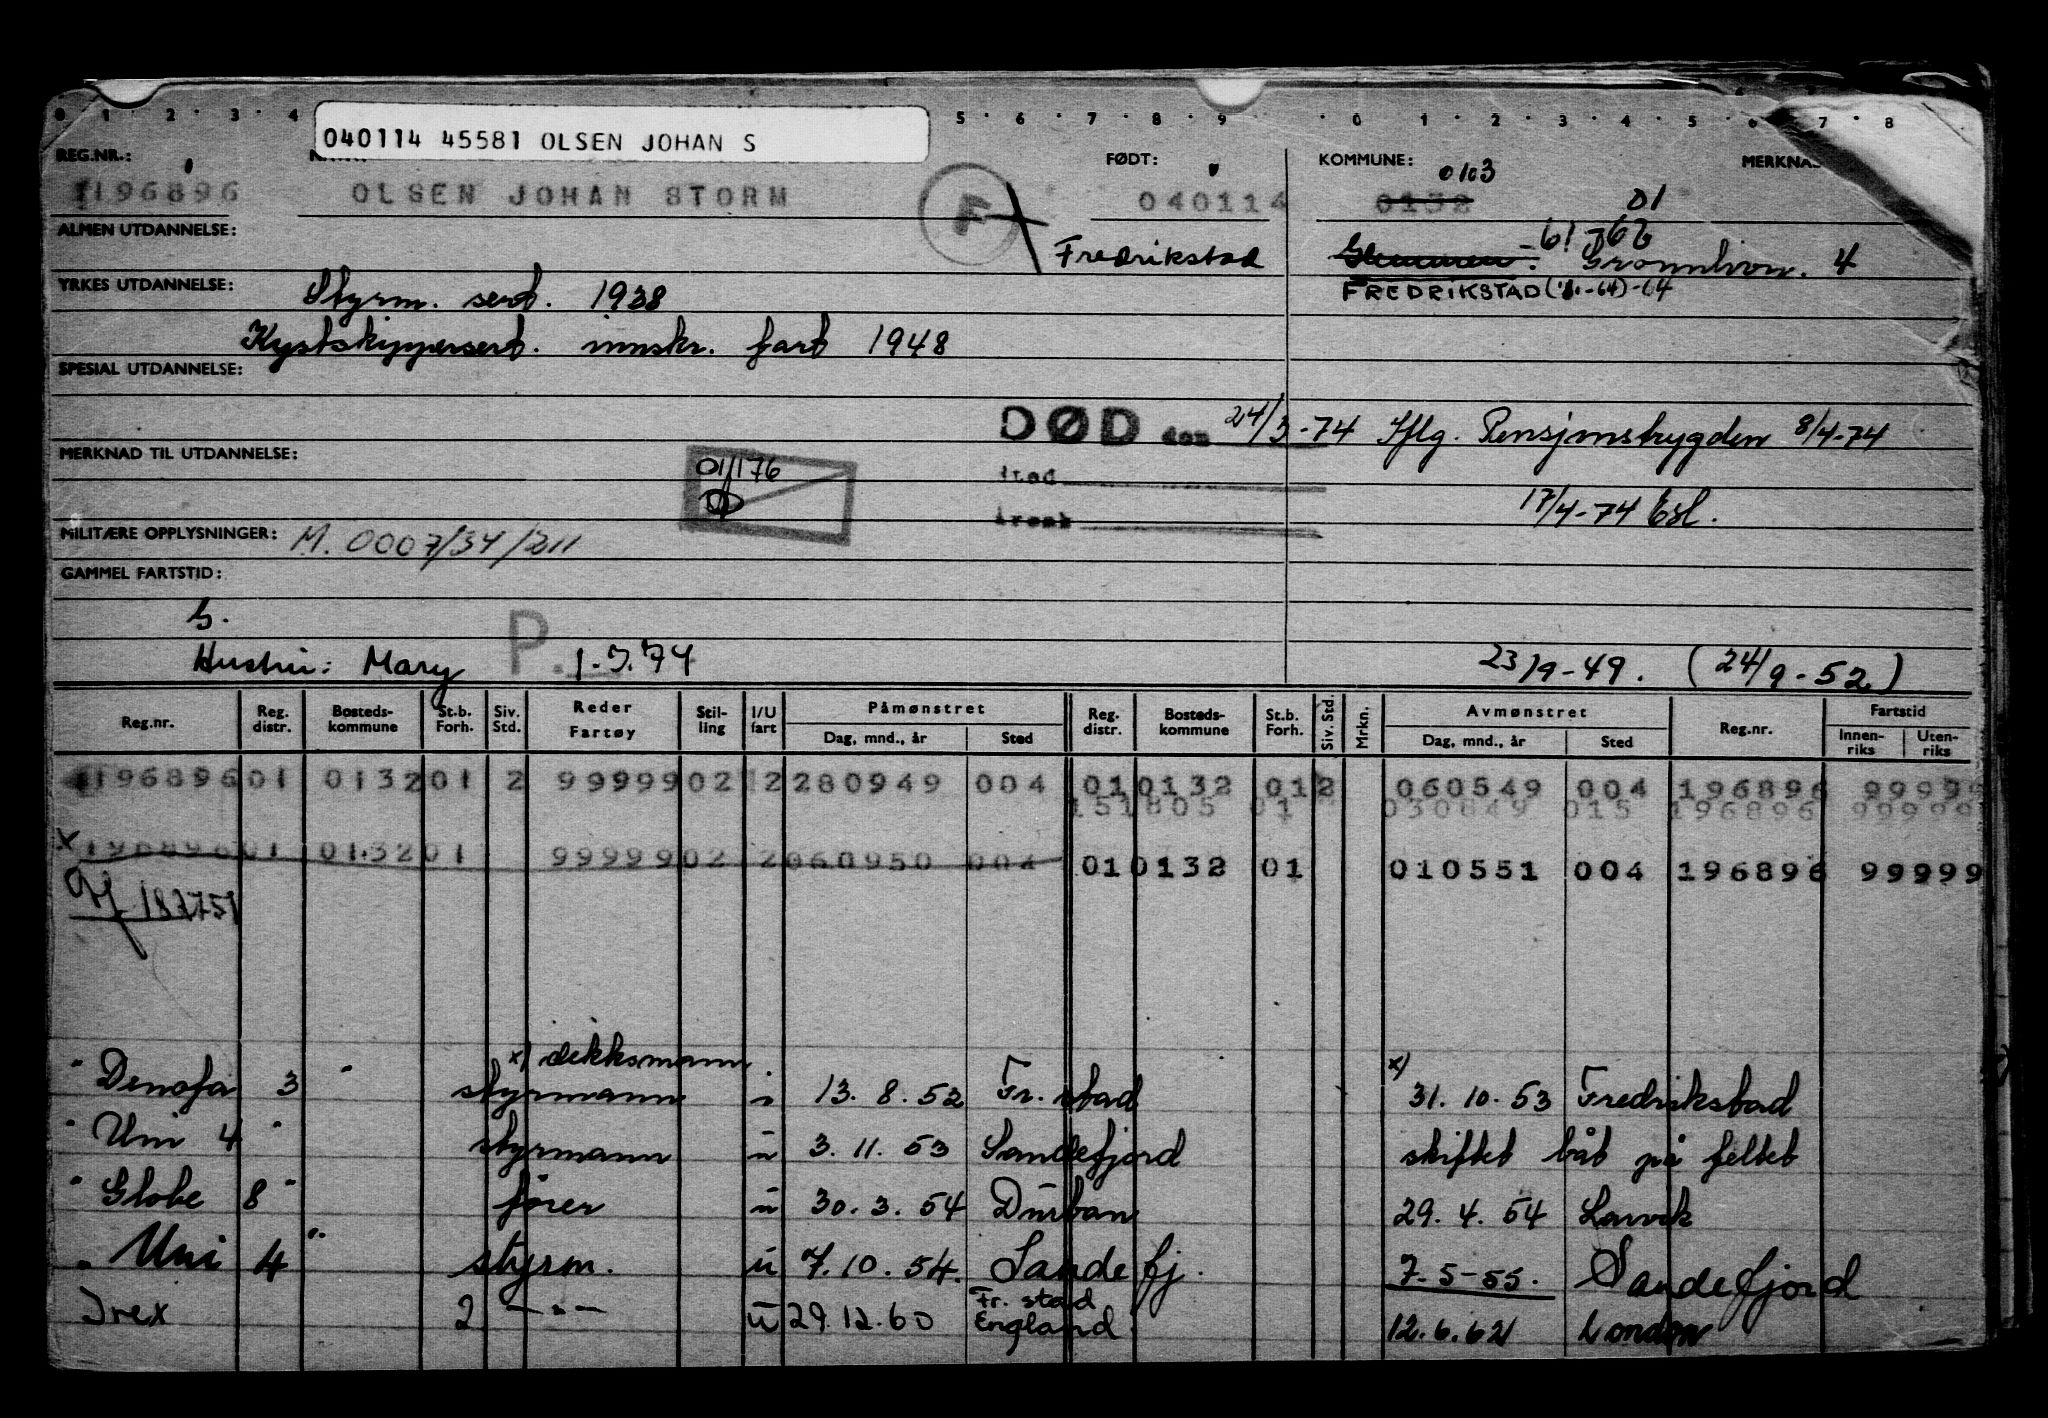 0 1 2 3 4 5 6 7 8 9 0 1 2 3 4 5 6 7 8
040114 45581 OLSEN JOHAN S
REG.NR.: FØDT: KOMMUNE: MERKNA
0103
196896 OLSEN JOHAN STORM F 040114 0132 01
ALMEN UTDANNELSE: 61-766
Fredrikstad Glemmen. 4
YRKES UTDANNELSE: Styrm. sert. 1938 FREDRIKSTAD
Kystskippersert. innskr. fart 1948
SPESIAL UTDANNELSE:
DØD den 24/3-74 Iflg. Pensjonstrygden 8/4-74
MERKNAD TIL UTDANNELSE: 01/176
sted
17/4-74 Esl.
årsak
MILITÆRE OPPLYSNINGER: M. 0007/34/211
GAMMEL FARTSTID:
S.
Hustru: Mary P. 1.3.74 23/9-49. (24/9-52)
Reg.nr. Reg. distr. Bosteds-kommune St.b. Forh. Siv. Std. Reder Fartøy Stil-ling I/U fart Påmønstret Dag, mnd., år Sted Reg. distr. Bosteds-kommune St.b. Forh. Siv. Std. Mrkn. Avmønstret Dag, mnd., år Sted Reg.nr. Fartstid Innen-riks Uten-riks
196896 01 0132 01 2 99999 02 2 280949 004 01 0132 01 2 060549 004 196896 99999
151805 01 030849 015 196896 99999
x 196896 01 0132 01 99999 02 2 060950 004 01 0132 01 010551 004 196896 99999
x) dekksmann x)
" Denofa 3 " styrmann 13. 8. 52 Fr. stad 31. 10. 53 Fredrikstad
" Uni 4 " styrmann u 3. 11. 53 Sandefjord skiftet båt på feltet
" Globe 8 " fører u 30. 3. 54 Durban 29. 4. 54 Larvik
" Uni 4 " styrm. u 7. 10. 54. Sandefj. 7-5-55. Sandefjord
Fr. stad
Irex 2 — " — u 29. 12. 60 England 12. 6. 62 London